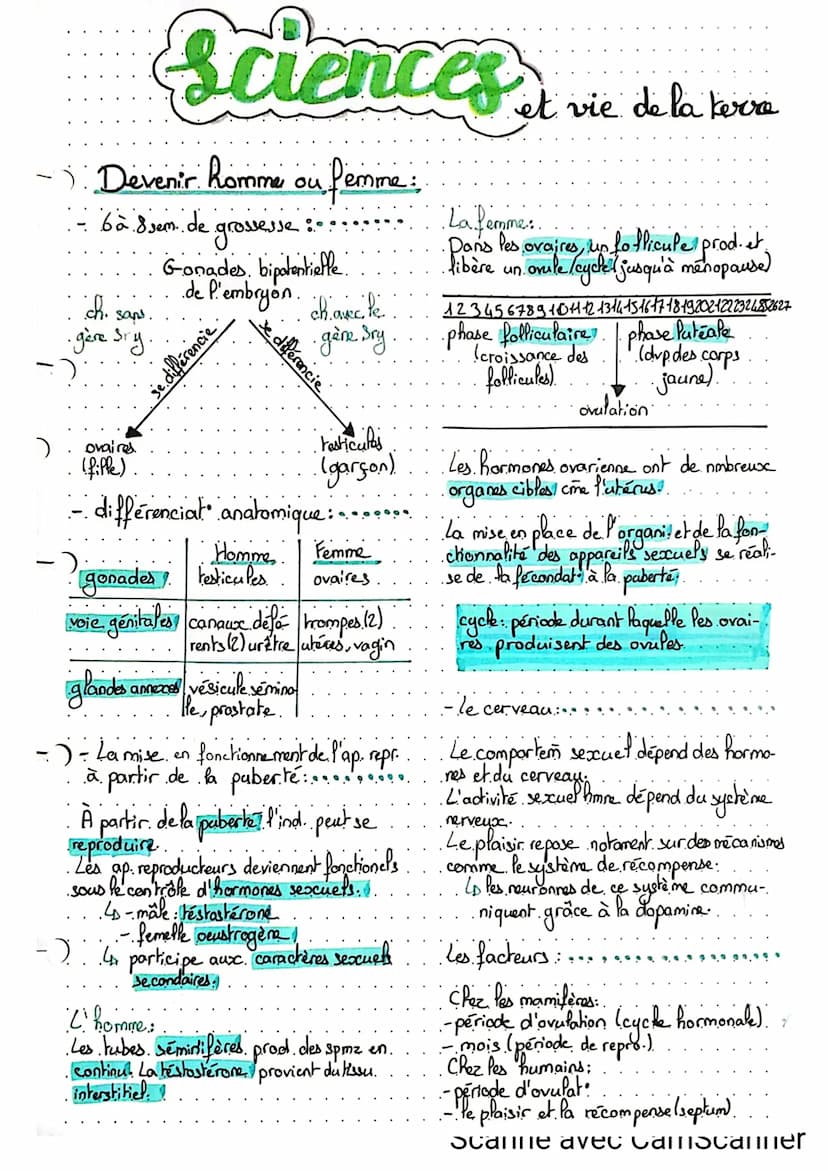 Sciences
et vie de la terre
-) Devenir homme ou femme :
- 6 à 8 sem. de grossesse :
Gonades bipotentielle
de l'embryon
ch. sans
gène Sry
ch. avec le
gène Sry
se différencie
se différencie
ovaires
(fille)
testicules
(garçon)
- différenciat° anatomique :
Homme
Femme
gonades
testicules
ovaires
voie génitales
canaux défé-
rents (2) urètre
trompes (2)
utérus, vagin
glandes annexes
vésicule sémina-
le, prostate
-) - La mise en fonctionnement de l'ap. repr.
à partir de la puberté :
À partir de la puberté l'ind. peut se
reproduire.
Les ap. reproducteurs deviennent fonctionels
sous le contrôle d'hormones sexuels.
↳ - mâle : téstostérone
- femelle oeustrogène
↳ participe aux caractères sexuels
secondaires.
L'homme :
Les tubes séminiféres prod. des spmz en
continu. La téstostérone provient du tissu
interstitiel.
La femme :
Dans les ovaires, un follicule prod. et
libère un ovule/cycle (jusqu'à ménopause)
1 2 3 4 5 6 7 8 9 10 11 12 13 14 15 16 17 18 19 20 21 22 23 24 25 26 27
phase folliculaire
(croissance des
follicules)
phase lutéale
(dvp des corps
jaune)
ovulation
Les hormones ovarienne ont de nmbreux
organes cibles cme l'utérus.
La mise en place de l'organi. et de la fon-
ctionnalité des appareils sexuels se réali-
se de la fécondat° à la puberté.
cycle : période durant laquelle les ovai-
res produisent des ovules.
- le cerveau :
Le comportem sexuel dépend des hormo-
nes et du cerveau.
L'activité sexuel hmne dépend du système
nerveux.
Le plaisir repose notament sur des mécanismes
comme le système de récompense.
↳ les neuronnes de ce système commu-
niquent grâce à la dopamine.
Les facteurs :
Chez les mamifères :
- période d'ovulation (cycle hormonale).
- mois (période de repro.)
Chez les humains :
- période d'ovulat°
- le plaisir et la récompense (septum).
Scanné avec CamScanner